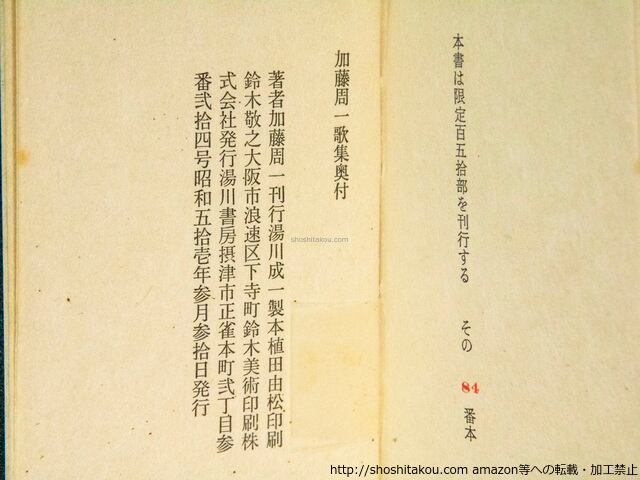 本書は限定百五拾部を刊行する その 84 番本
加藤周一歌集奥付
著者加藤周一刊行湯川成一製本植田由松印刷
鈴木敬之大阪市浪速区下寺町鈴木美術印刷株
式会社発行湯川書房摂津市正雀本町弐丁目参
番弐拾四号昭和五拾壱年参月参拾日発行
shoshitakou.com
http://shoshitakou.com amazon等への転載・加工禁止